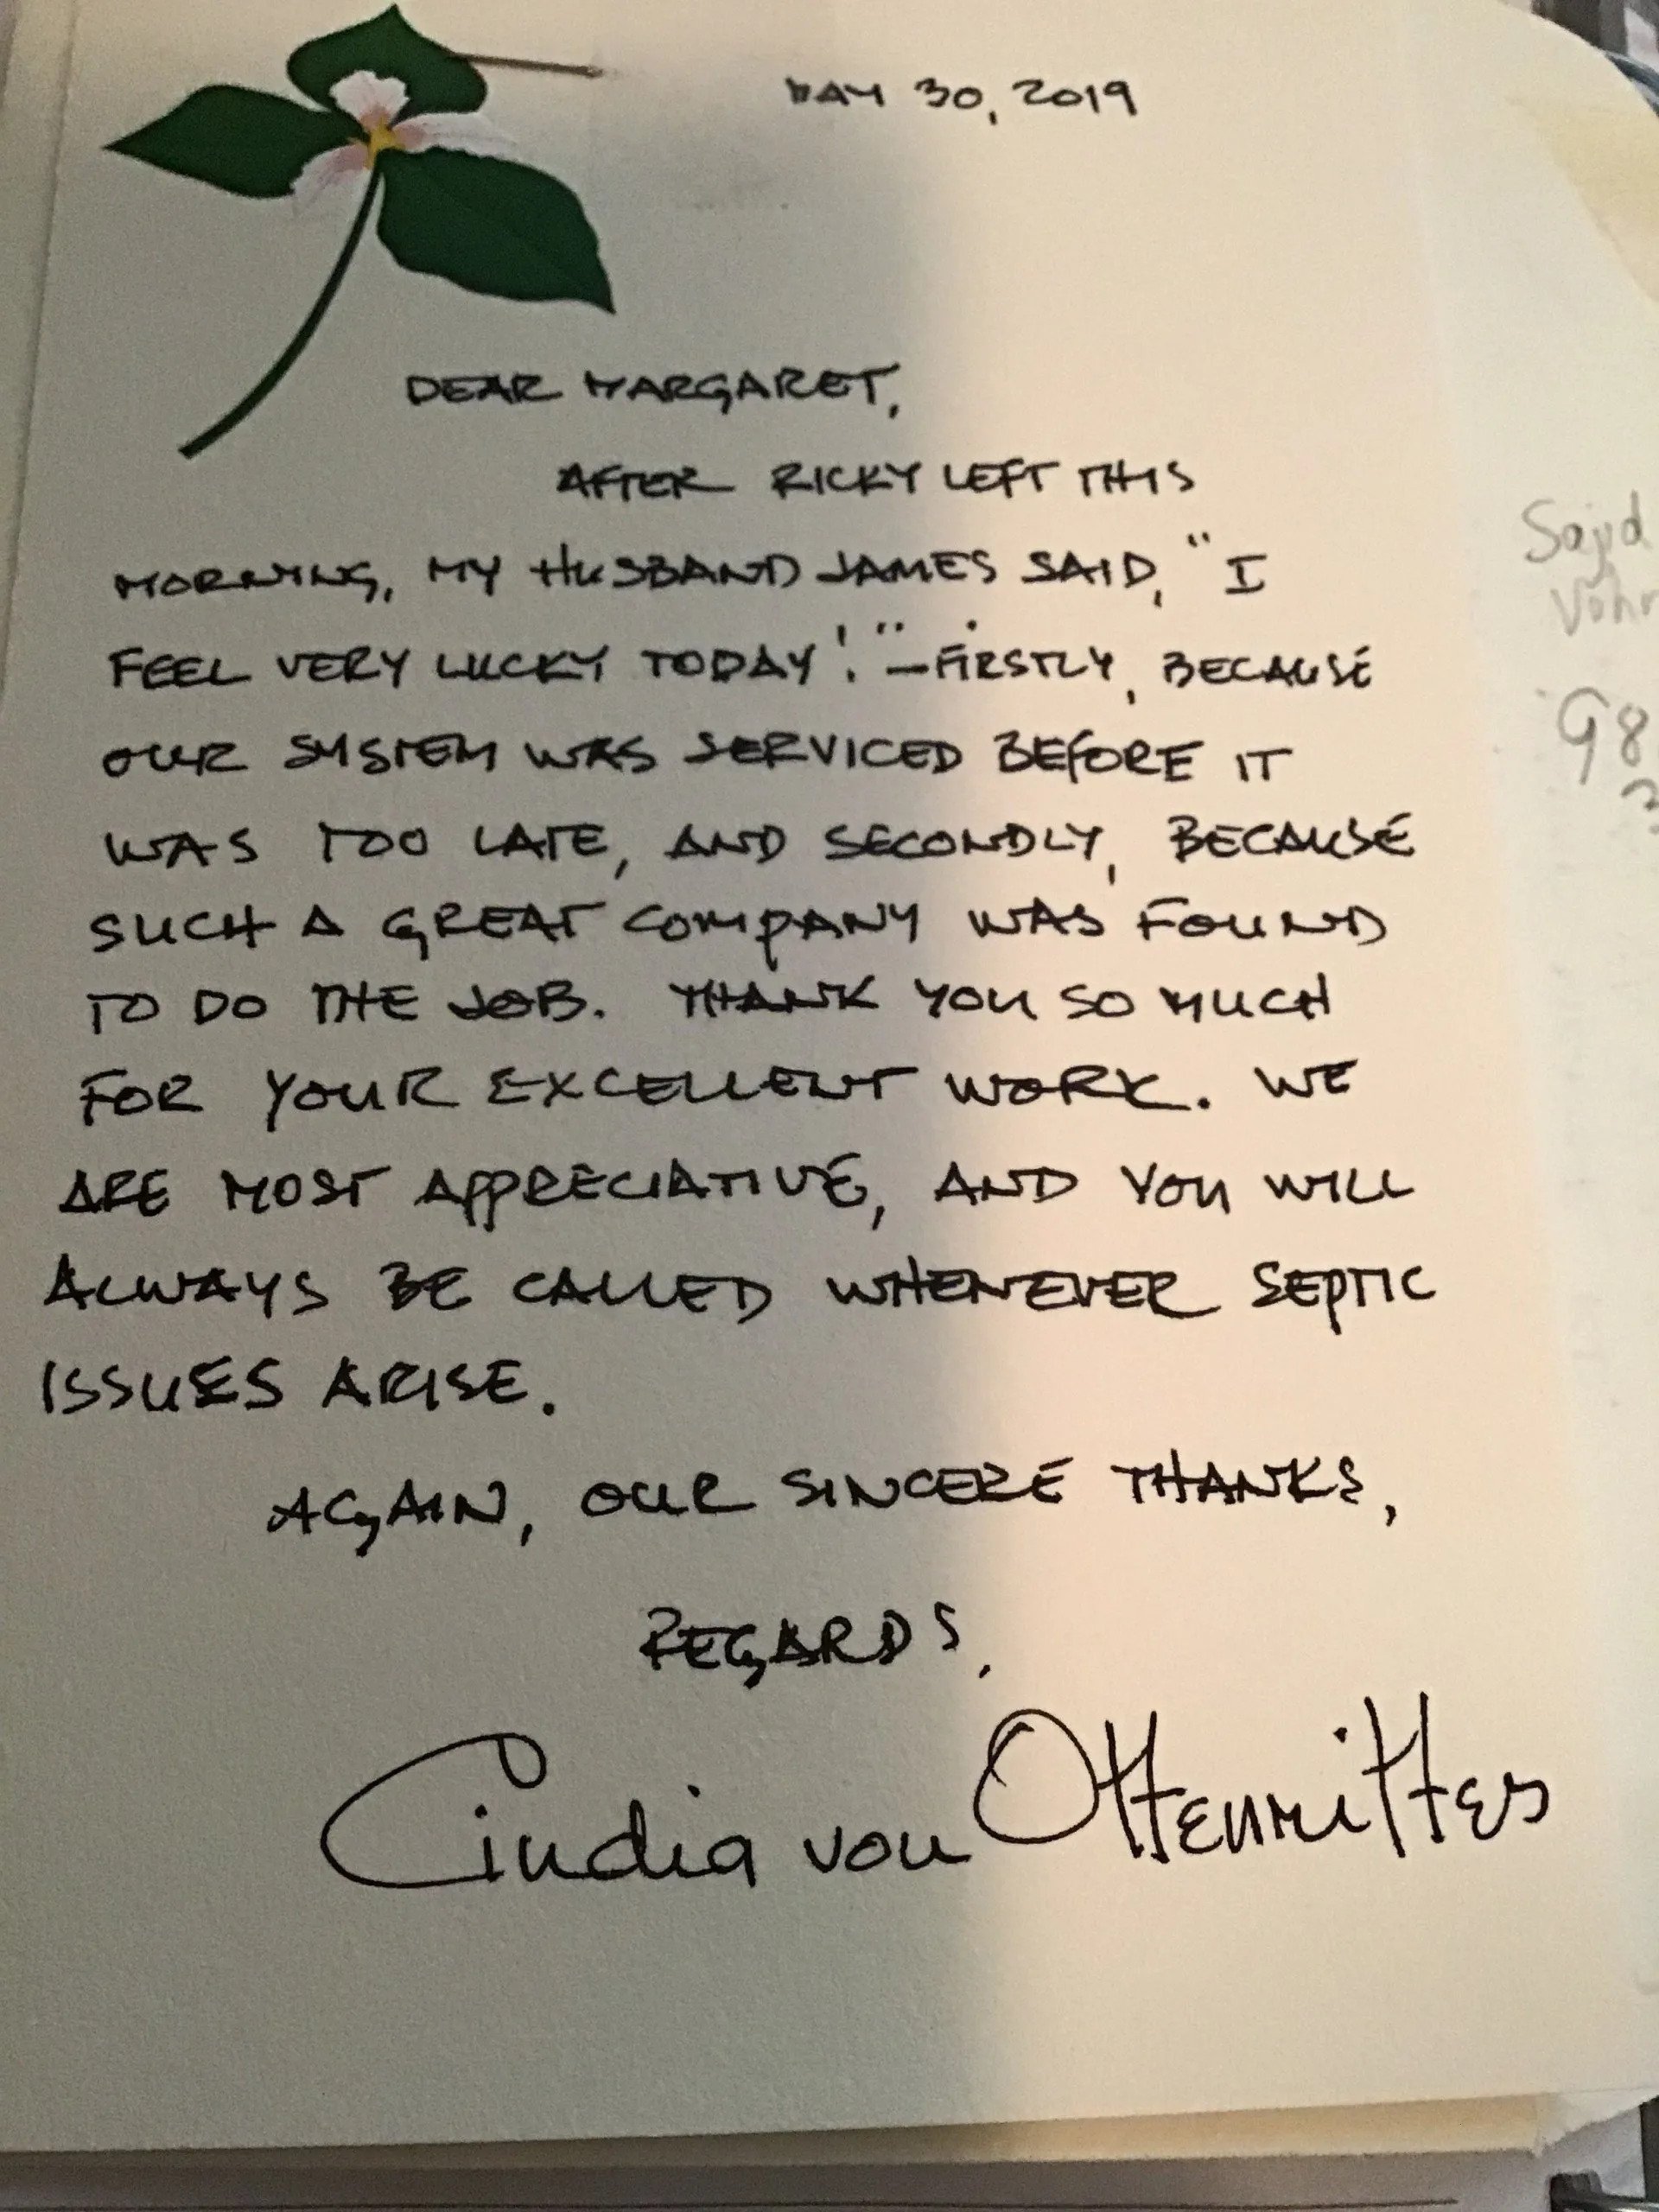 MAY 30, 2019
DEAR MARGARET,
AFTER RICKY LEFT THIS
MORNING, MY HUSBAND JAMES SAID, "I
FEEL VERY LUCKY TODAY!" – FIRSTLY, BECAUSE
OUR SYSTEM WAS SERVICED BEFORE IT
WAS TOO LATE, AND SECONDLY, BECAUSE
SUCH A GREAT COMPANY WAS FOUND
TO DO THE JOB. THANK YOU SO MUCH
FOR YOUR EXCELLENT WORK. WE
ARE MOST APPRECIATIVE, AND YOU WILL
ALWAYS BE CALLED WHENEVER SEPTIC
ISSUES ARISE.
AGAIN, OUR SINCERE THANKS,
REGARDS,
Cindia von
Sajid
98